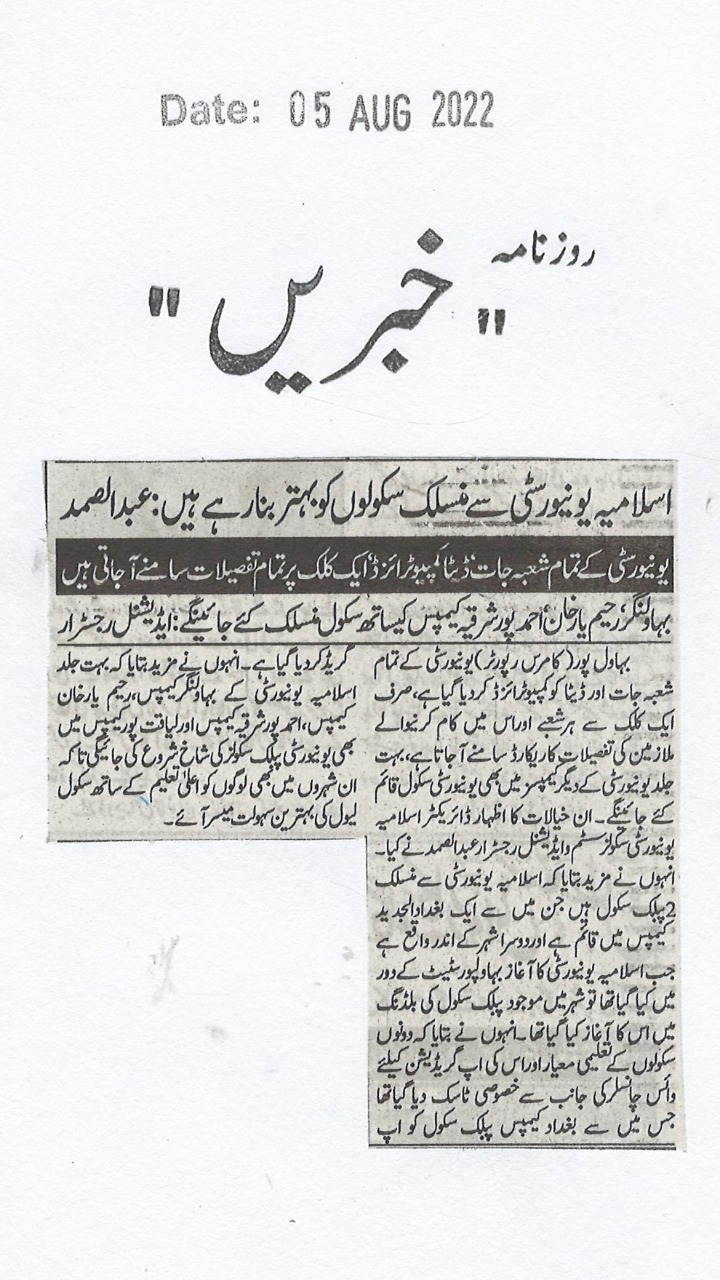 Date: 05 AUG 2022
روزنامہ
"خبریں"
اسلامیہ یونیورسٹی سے منسلک سکولوں کو بہتر بنا رہے ہیں: عبدالصمد
یونیورسٹی کے تمام شعبہ جات، ڈیٹا کمپیوٹرائزڈ، ایک کلک پر تمام تفصیلات سامنے آ جاتی ہیں
بہاولنگر، رحیم یار خان، احمد پور شرقیہ کیمپس کیساتھ سکول منسلک کئے جائینگے: ایڈیشنل رجسٹرار
بہاول پور (کامرس رپورٹر) یونیورسٹی کے تمام
شعبہ جات اور ڈیٹا کو کمپیوٹرائزڈ کر دیا گیا ہے، صرف
ایک کلک سے ہر شعبے اور اس میں کام کرنیوالے
ملازمین کی تفصیلات کا ریکارڈ سامنے آ جاتا ہے، بہت
جلد یونیورسٹی کے دیگر کیمپسز میں بھی یونیورسٹی سکول قائم
کئے جائینگے۔ ان خیالات کا اظہار ڈائریکٹر اسلامیہ
یونیورسٹی سکولز سسٹم و ایڈیشنل رجسٹرار عبدالصمد نے کیا۔
انہوں نے مزید بتایا کہ اسلامیہ یونیورسٹی سے منسلک
2 پبلک سکول ہیں جن میں سے ایک بغداد الجدید
کیمپس میں قائم ہے اور دوسرا شہر کے اندر واقع ہے
جب اسلامیہ یونیورسٹی کا آغاز بہاولپور سٹیٹ کے دور
میں کیا گیا تھا تو شہر میں موجود پبلک سکول کی بلڈنگ
میں اس کا آغاز کیا گیا تھا۔ انہوں نے بتایا کہ دونوں
سکولوں کے تعلیمی معیار اور اس کی اپ گریڈیشن کیلئے
وائس چانسلر کی جانب سے خصوصی ٹاسک دیا گیا تھا
جس میں سے بغداد کیمپس پبلک سکول کو اپ
گریڈ کر دیا گیا ہے۔ انہوں نے مزید بتایا کہ بہت جلد
اسلامیہ یونیورسٹی کے بہاولنگر کیمپس، رحیم یار خان
کیمپس، احمد پور شرقیہ کیمپس اور لیاقت پور کیمپس میں
بھی یونیورسٹی پبلک سکولز کی شاخ شروع کی جائیگی تا کہ
ان شہروں میں بھی لوگوں کو اعلیٰ تعلیم کے ساتھ سکول
لیول کی بہترین سہولت میسر آئے۔